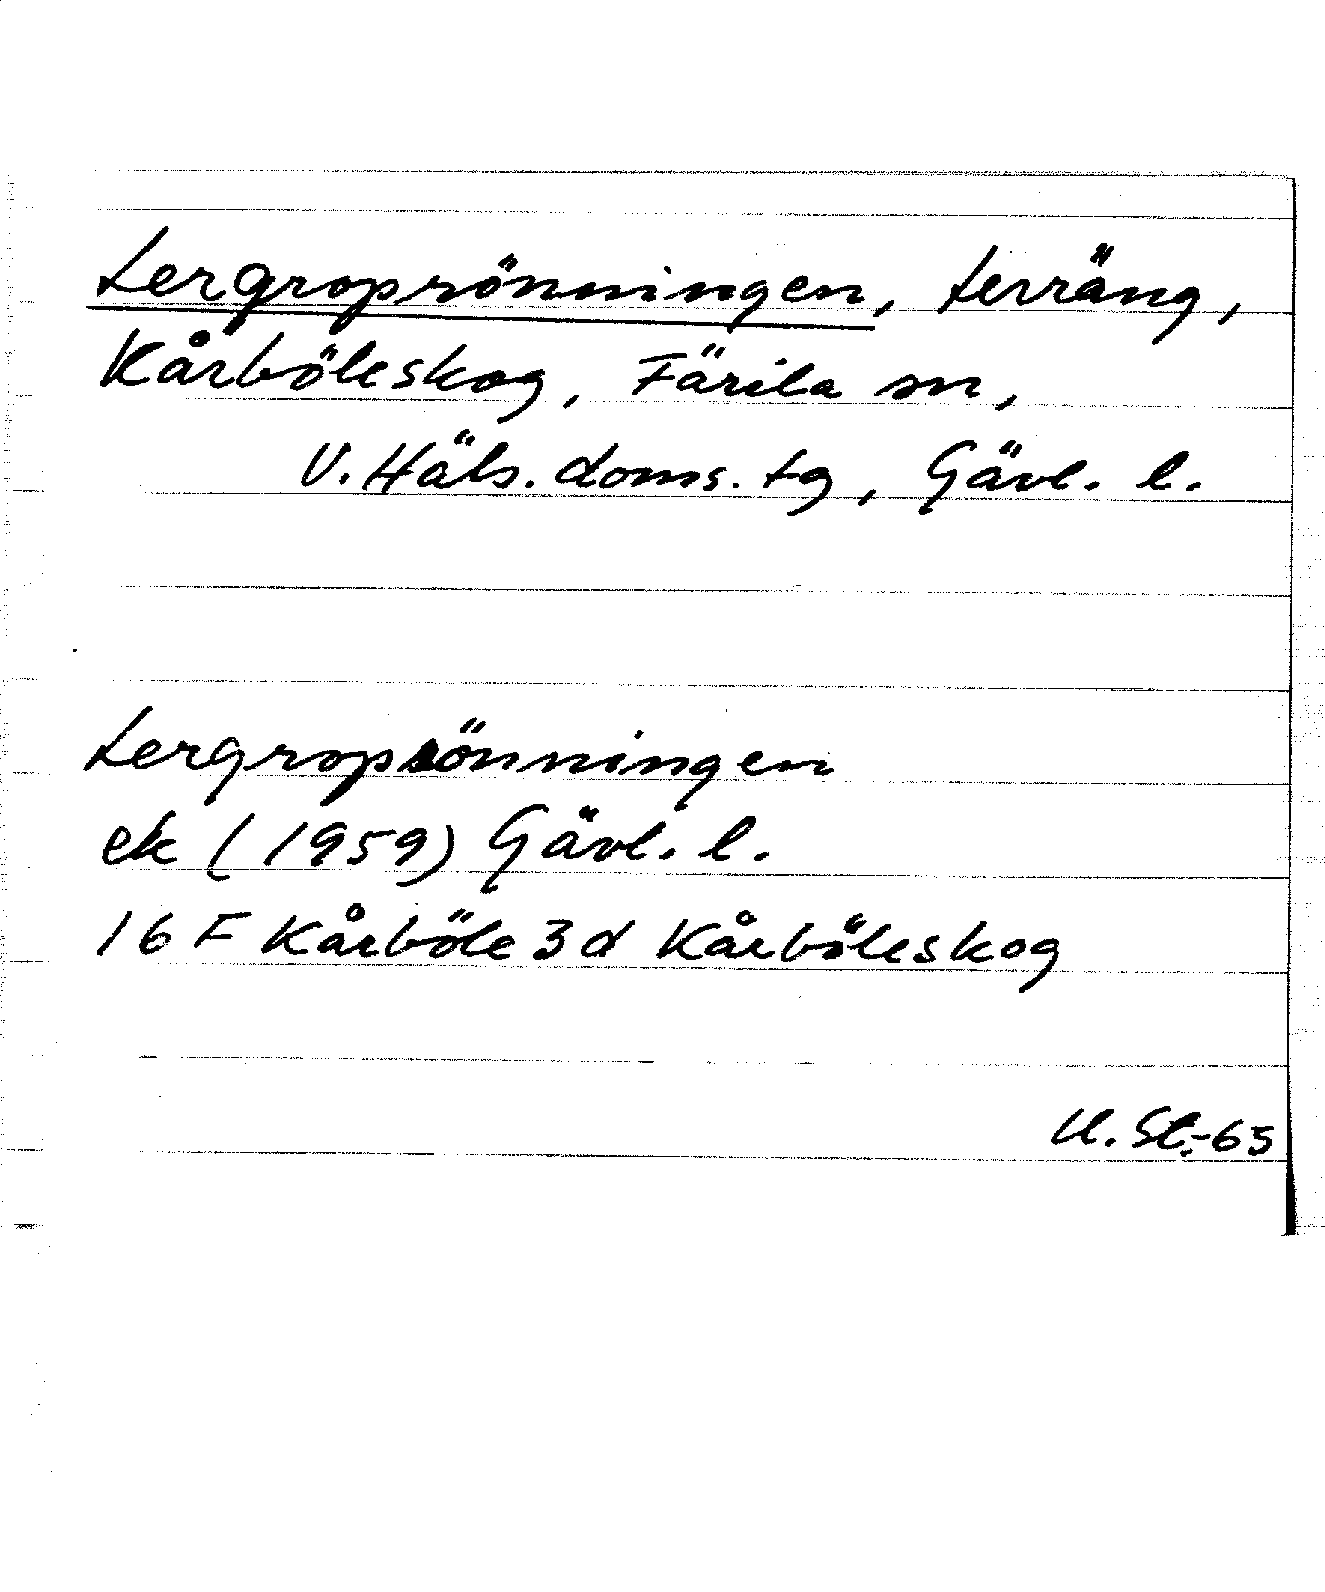 Lergroprönningen, terräng,
Kårböleskog, Färila sn,
V. Häls. doms. tg, Gävl. l.
Lergroprönningen
ek (1959) Gävl. l.
16 F Kårböle 3 d Kårböleskog
U. St.-65